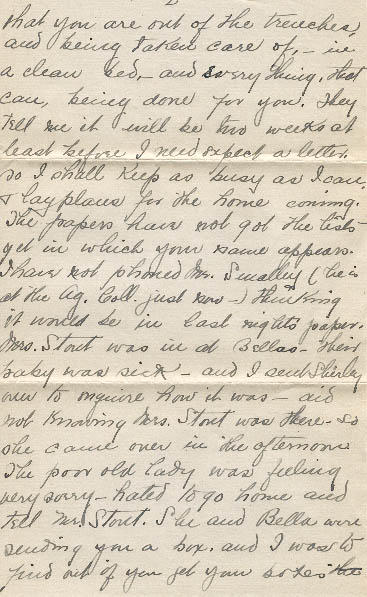 2
that you are out of the trenches,
and being taken care of, – in
a clean bed, – and everything, that
can, being done for you. They
tell me it will be two weeks at
least before I need expect a letter.
so I shall keep as busy as I can,
& lay plans for the home coming.
The papers have not got the lists
yet in which your name appears.
I have not phoned Mr. Smalley (he is
at the Ag. Coll. just now –) thinking
it would be in last nights paper.
Mrs. Stout was in at Bellas – their
baby was sick – and I sent Shirley
over to enquire how it was – and
not knowing Mrs. Stout was there – so
she came over in the afternoon
The poor old lady was feeling
very sorry – hated to go home and
tell Mr. Stout. She and Bella were
sending you a box. and I was to
find out if you get your boxes the